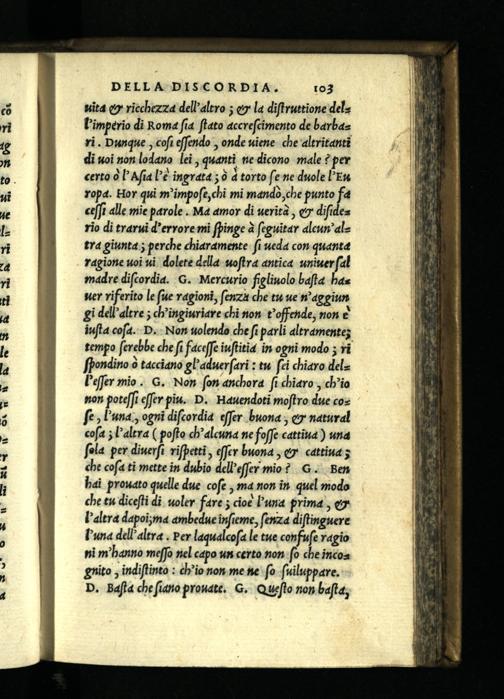 DELLA DISCORDIA. 103
uita & ricchezza dell'altro; & la distruttione del=
l'imperio di Roma sia stato accrescimento de barba=
ri. Dunque, cosi essendo, onde uiene che altritanti
di uoi non lodano lei, quanti ne dicono male? per
certo ò l'Asia l'è ingrata; ò à torto se ne duole l'Eu
ropa. Hor qui m'impose, chi mi mandò, che punto fa
cessi alle mie parole. Ma amor di uerità, & diside=
rio di trarui d'errore mi spinge à seguitar alcun'al=
tra giunta; perche chiaramente si ueda con quanta
ragione uoi ui dolete della uostra antica uniuersal
madre discordia. G. Mercurio figliuolo basta ha=
uer riferito le sue ragioni, senza che tu ue n'aggiun
gi dell'altre; ch'ingiuriare chi non t'offende, non è
iusta cosa. D. Non uolendo che si parli altramente;
tempo serebbe che si facesse iustitia in ogni modo; ri
spondino ò tacciano gl'aduersari: tu sei chiaro del=
l'esser mio. G. Non son anchora si chiaro, ch'io
non potessi esser piu. D. Hauendoti mostro due co=
se, l'una, ogni discordia esser buona, & natural
cosa; l'altra (posto ch'alcuna ne fosse cattiua) una
sola per diuersi rispetti, esser buona, & cattiua;
che cosa ti mette in dubio dell'esser mio? G. Ben
hai prouato quelle due cose, ma non in quel modo
che tu dicesti di uoler fare; cioè l'una prima, &
l'altra dapoi; ma ambedue insieme, senza distinguere
l'una dell'altra. Per laqualcosa le tue confuse ragio
ni m'hanno messo nel capo un certo non so che inco=
gnito, indistinto: ch'io non me ne so suiluppare.
D. Basta che siano prouate. G. Questo non basta,